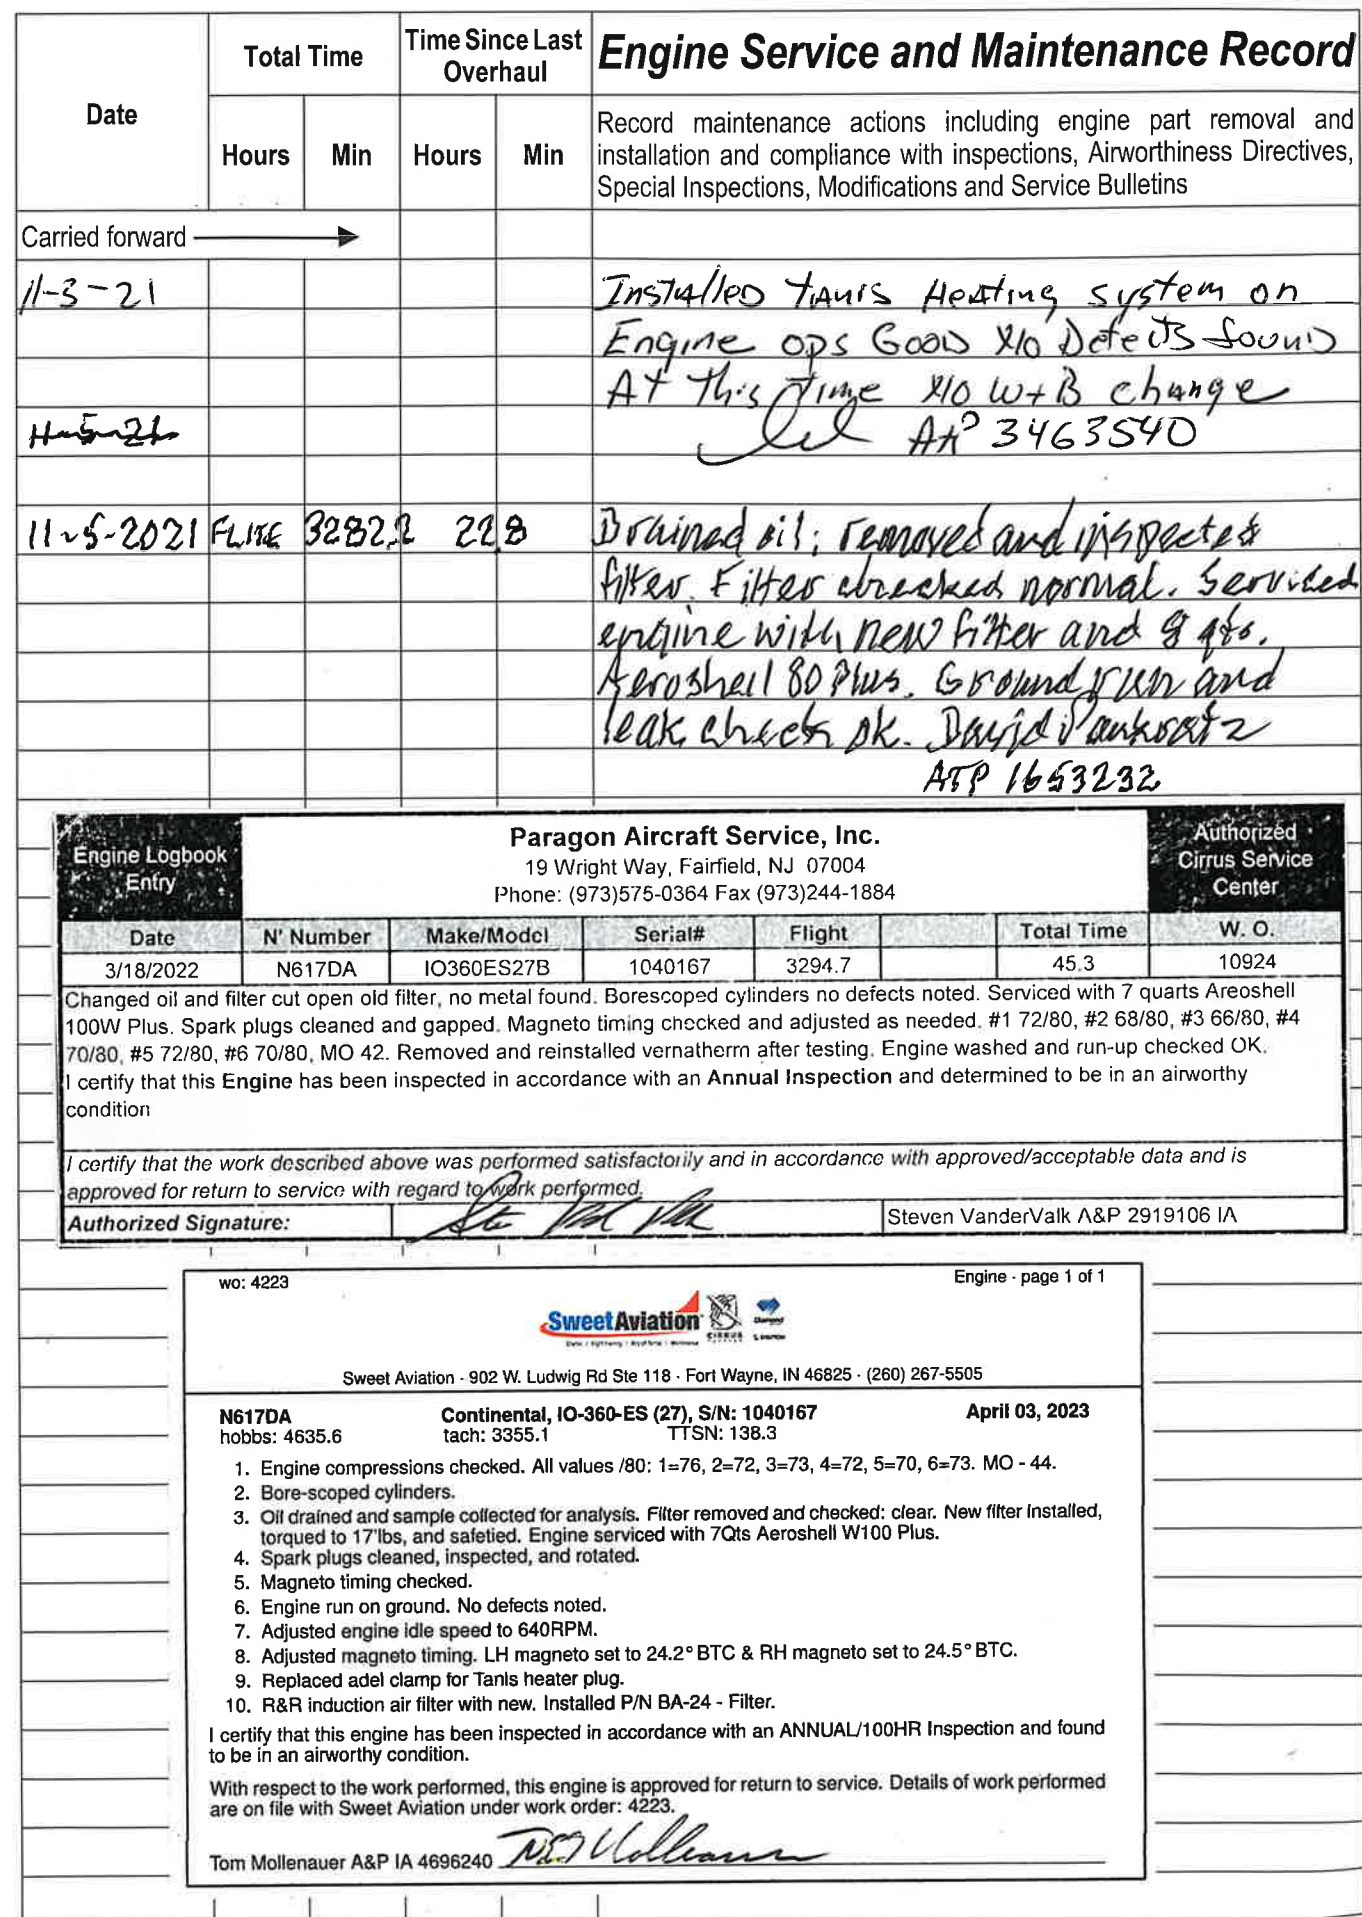 Date
Total Time
Time Since Last Overhaul
Engine Service and Maintenance Record
Hours Min Hours Min
Record maintenance actions including engine part removal and
installation and compliance with inspections, Airworthiness Directives,
Special Inspections, Modifications and Service Bulletins
Carried forward
11-3-21 Installed Tanis Heating system on
Engine ops Good No Defects found
At This Time No W+B change
11-5-21 A&P 3463540
11-5-2021 FLITE 3282.2 22.8 Drained oil; removed and inspected
filter. Filter checked normal. Serviced
engine with new filter and 8 qts.
Aeroshell 80 Plus. Ground run and
leak check ok. David Pankratz
ATP 1653232
Engine Logbook Entry
Paragon Aircraft Service, Inc.
19 Wright Way, Fairfield, NJ 07004
Phone: (973)575-0364 Fax (973)244-1884
Authorized Cirrus Service Center
Date N' Number Make/Model Serial# Flight Total Time W. O.
3/18/2022 N617DA IO360ES27B 1040167 3294.7 45.3 10924
Changed oil and filter cut open old filter, no metal found. Borescoped cylinders no defects noted. Serviced with 7 quarts Areoshell
100W Plus. Spark plugs cleaned and gapped. Magneto timing checked and adjusted as needed. #1 72/80, #2 68/80, #3 66/80, #4
70/80, #5 72/80, #6 70/80, MO 42. Removed and reinstalled vernatherm after testing. Engine washed and run-up checked OK.
I certify that this Engine has been inspected in accordance with an Annual Inspection and determined to be in an airworthy
condition
I certify that the work described above was performed satisfactorily and in accordance with approved/acceptable data and is
approved for return to service with regard to work performed.
Authorized Signature: Steven VanderValk A&P 2919106 IA
wo: 4223 Engine - page 1 of 1
SweetAviation CIRRUS Diamond
Sweet Aviation - 902 W. Ludwig Rd Ste 118 - Fort Wayne, IN 46825 - (260) 267-5505
N617DA Continental, IO-360-ES (27), S/N: 1040167 April 03, 2023
hobbs: 4635.6 tach: 3355.1 TTSN: 138.3
1. Engine compressions checked. All values /80: 1=76, 2=72, 3=73, 4=72, 5=70, 6=73. MO - 44.
2. Bore-scoped cylinders.
3. Oil drained and sample collected for analysis. Filter removed and checked: clear. New filter installed,
torqued to 17'lbs, and safetied. Engine serviced with 7Qts Aeroshell W100 Plus.
4. Spark plugs cleaned, inspected, and rotated.
5. Magneto timing checked.
6. Engine run on ground. No defects noted.
7. Adjusted engine idle speed to 640RPM.
8. Adjusted magneto timing. LH magneto set to 24.2° BTC & RH magneto set to 24.5° BTC.
9. Replaced adel clamp for Tanis heater plug.
10. R&R induction air filter with new. Installed P/N BA-24 - Filter.
I certify that this engine has been inspected in accordance with an ANNUAL/100HR Inspection and found
to be in an airworthy condition.
With respect to the work performed, this engine is approved for return to service. Details of work performed
are on file with Sweet Aviation under work order: 4223.
Tom Mollenauer A&P IA 4696240